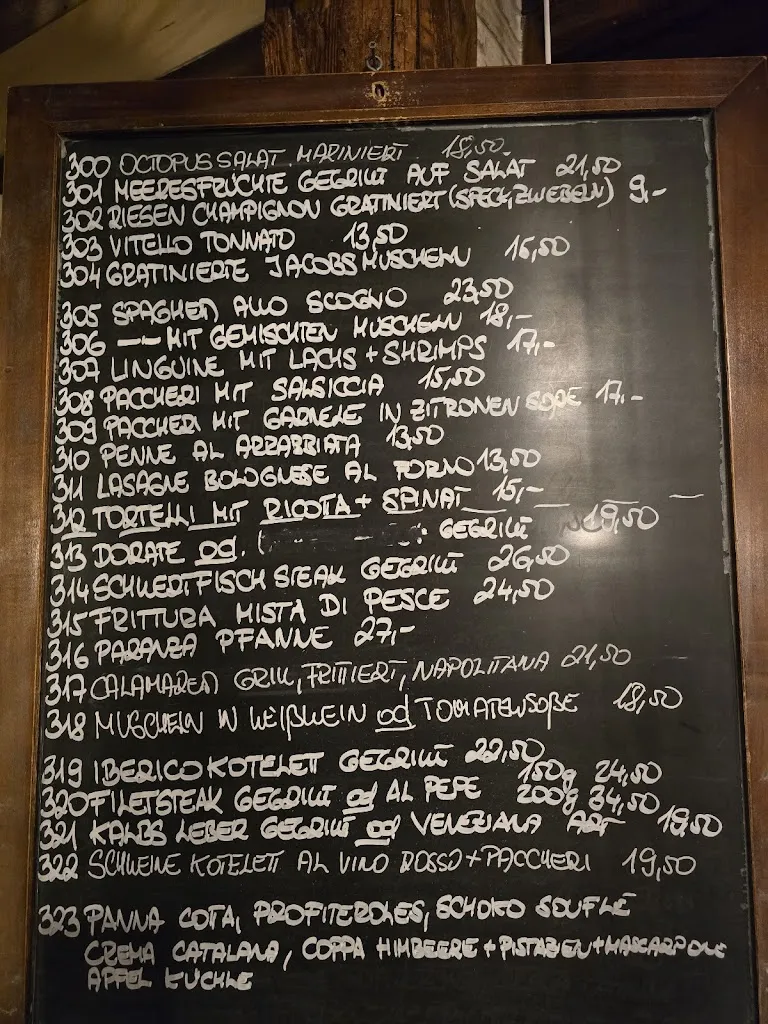 300 OCTOPUS SALAT MARINIERT 18,50
301 MEERESFRÜCHTE GEGRILLT AUF SALAT 21,50
302 RIESEN CHAMPIGNON GRATINIERT (SPECK, ZWIEBELN) 9,-
303 VITELLO TONNATO 13,50
304 GRATINIERTE JACOBSMUSCHELN 16,50
305 SPAGHETTI ALLO SCOGNO 23,50
306 —— MIT GEMISCHTEN MUSCHELN 18,-
307 LINGUINE MIT LACHS + SHRIMPS 17,-
308 PACCHERI MIT SALSICCIA 15,50
309 PACCHERI MIT GARNELE IN ZITRONENSOßE 17,-
310 PENNE AL ARRABBIATA 13,50
311 LASAGNE BOLOGNESE AL FORNO 13,50
312 TORTELLI MIT RICOTA + SPINAT 15,-
313 DORATE od. GEGRILLT 19,50
314 SCHWERTFISCH STEAK GEGRILLT 26,50
315 FRITTURA MISTA DI PESCE 24,50
316 PARANZA PFANNE 27,-
317 CALAMAREN GRILL, FRITTIERT, NAPOLITANA 21,50
318 MUSCHELN IN WEIßWEIN od TOMATENSOßE 18,50
319 IBERICO KOTELETT GEGRILLT 22,50
320 FILETSTEAK GEGRILLT od AL PEPE 150g 24,50
200g 34,50
321 KALBSLEBER GEGRILLT od VENEZIANA ART 19,50
322 SCHWEINE KOTELETT AL VINO ROSSO + PACCHERI 19,50
323 PANNA COTTA, PROFITEROLES, SCHOKO SOUFLÉ
CREMA CATALANA, COPPA HIMBEERE + PISTAZIEN + MASCARPONE
APFEL KÜCHLE